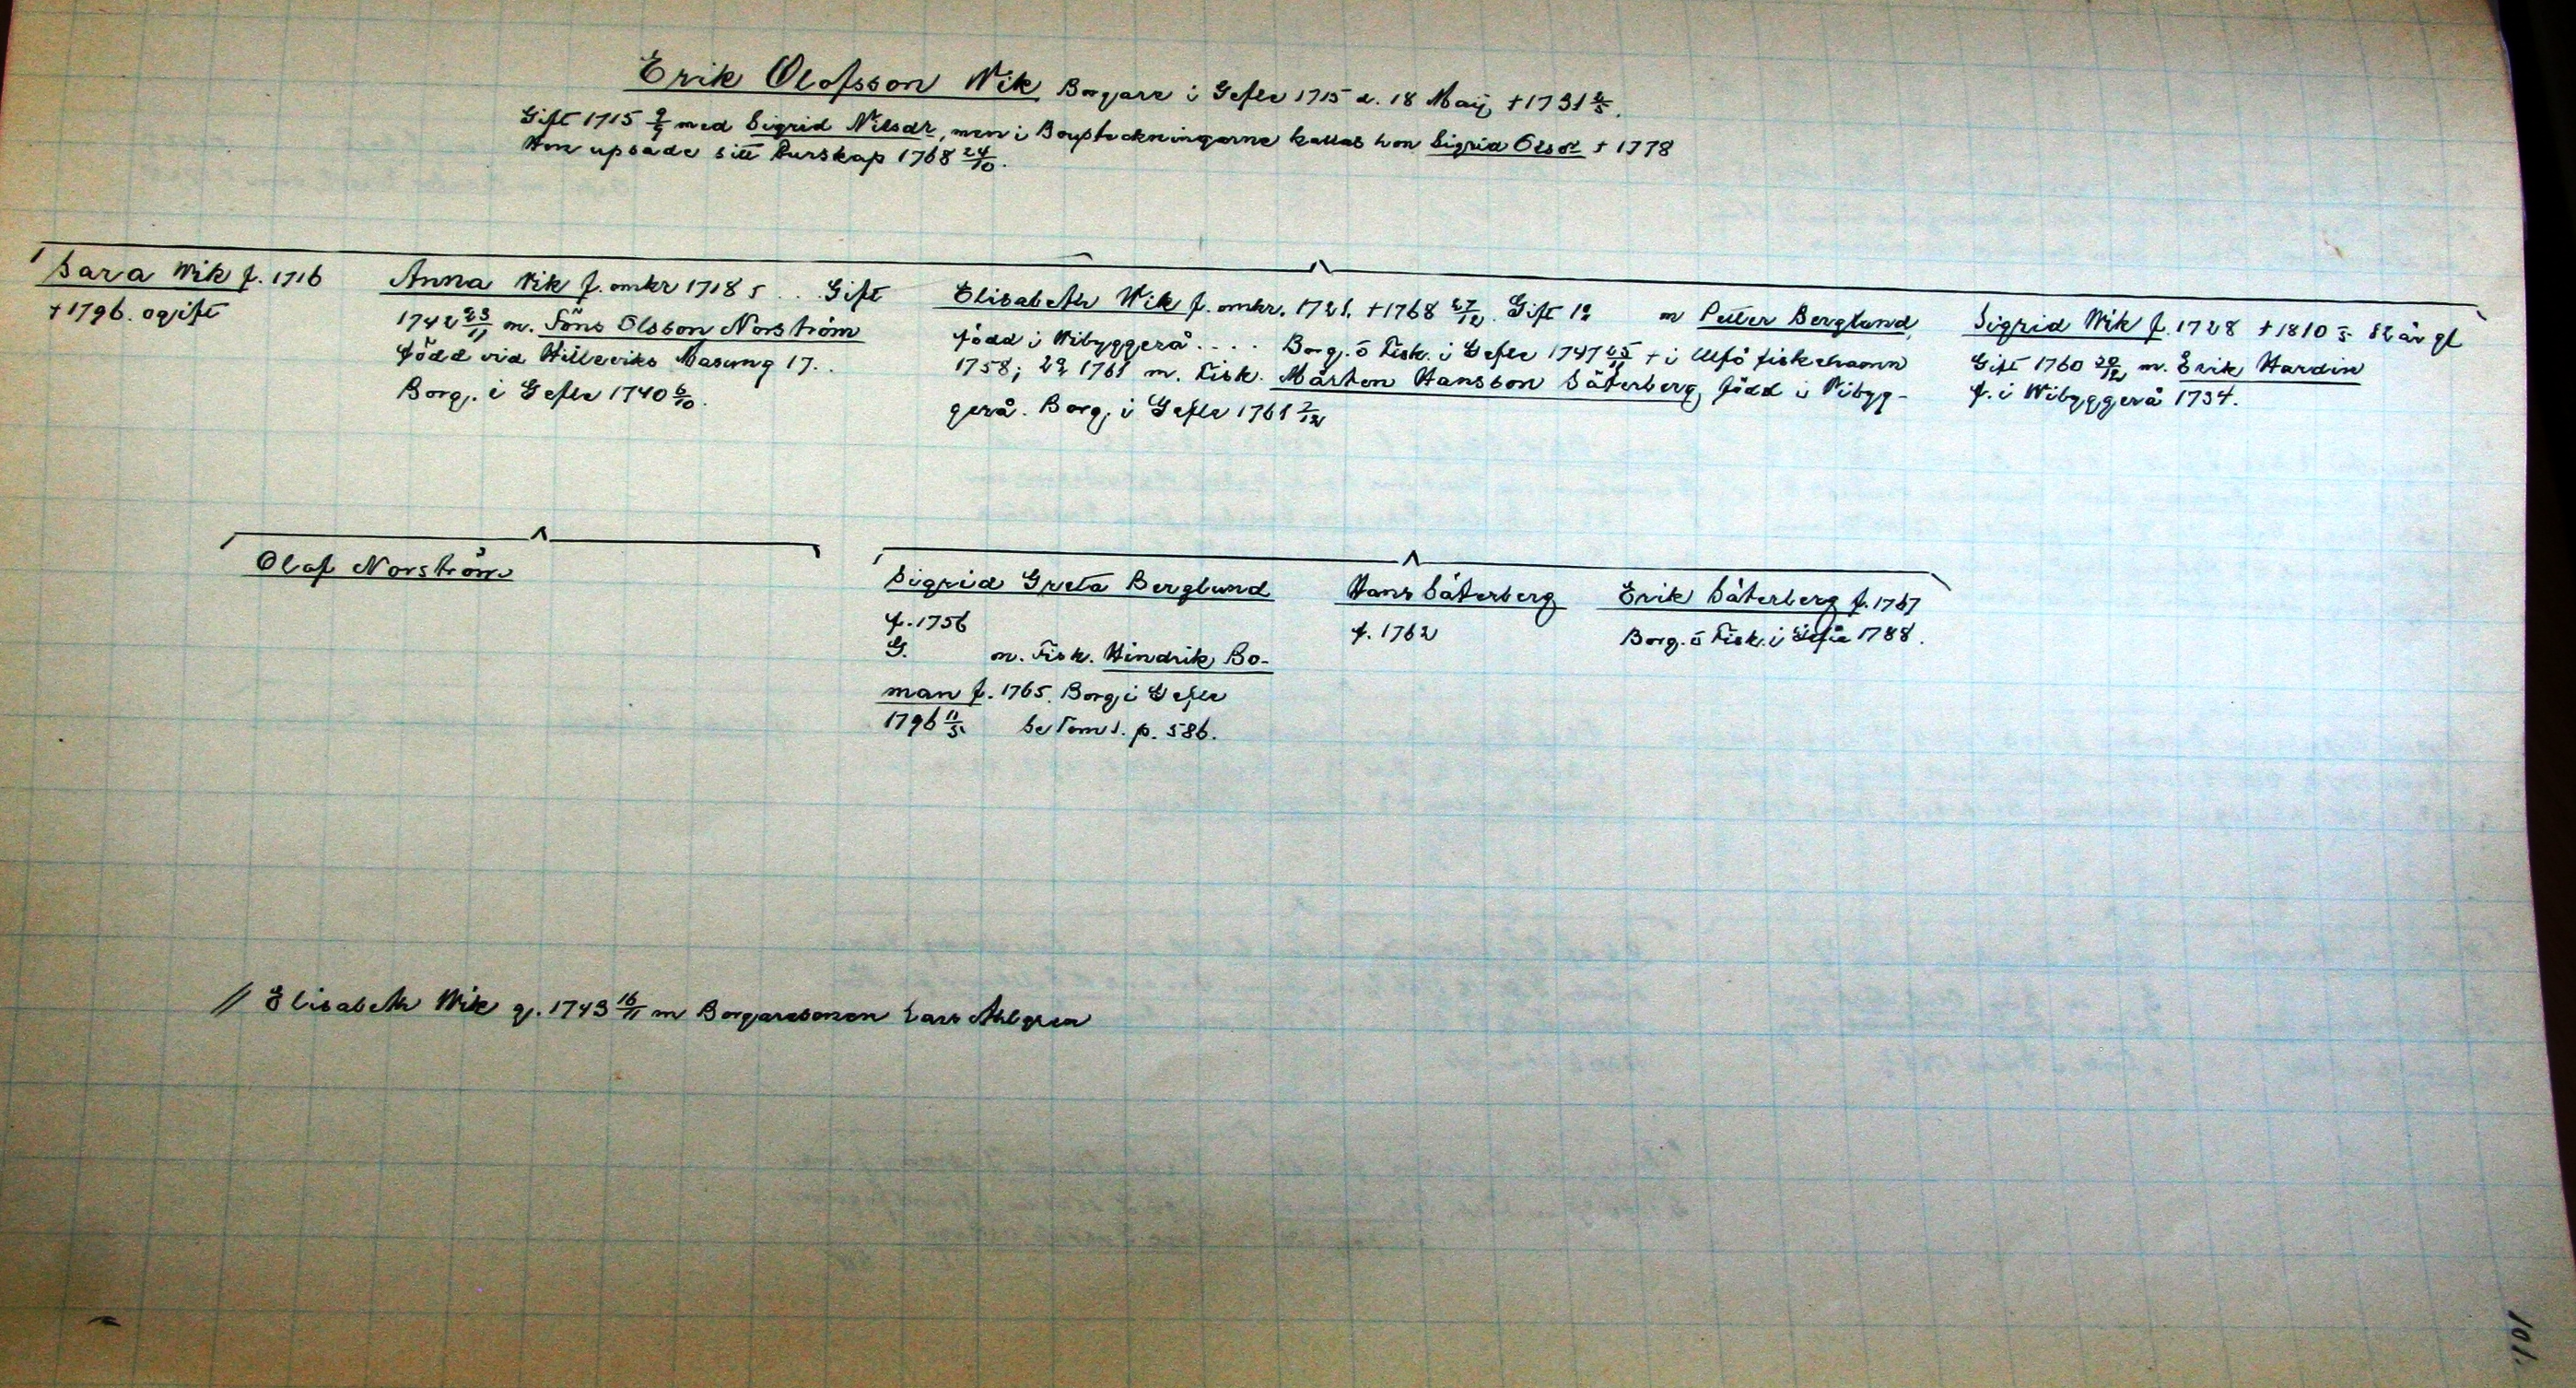 Erik Olofsson Wik Borgare i Gefle 1715 d. 18 Maij, +1731 4/5.
Gift 1715 9/9 med Sigrid Nilsdr, men i Bouptekningarne kallas hon Sigrid Olsdr + 1778
Hon upsade sitt Burskap 1768 24/10.
Sara Wik f. 1716
+1796. ogift
Anna Wik f. omkr 1718 . . . Gift
1742 23/11 m. Jöns Olsson Norström
född vid Hilleviks Masung 17. .
Borg. i Gefle 1740 6/10.
Elisabeth Wik f. omkr. 1721. +1768 27/12. Gift 1o m Petter Berglund,
född i Wibyggerå . . . . Borg. o Fisk. i Gefle 1747 25/11 + i Ulfö fiskehamn
1758; 2o 1761 m. Fisk. Mårten Hansson Säterberg, född i Wibyg-
gerå. Borg. i Gefle 1761 7/12
Sigrid Wik f. 1728 +1810 82 år gl
Gift 1760 29/12 m. Erik Hardin
f. i Wibyggerå 1734.
Olof Norström
Sigrid Greta Berglund
f. 1756
G. m. Fisk. Hindrik Bo-
man f. 1765. Borg. i Gefle
1796 11/5. se Tom 1. p. 586.
Hans Säterberg
f. 1762
Erik Säterberg f. 1767
Borg. o Fisk. i Gefle 1788.
// Elisabeth Wik g. 1743 16/11 m Borgaresonen Lars Ahlgren
101.